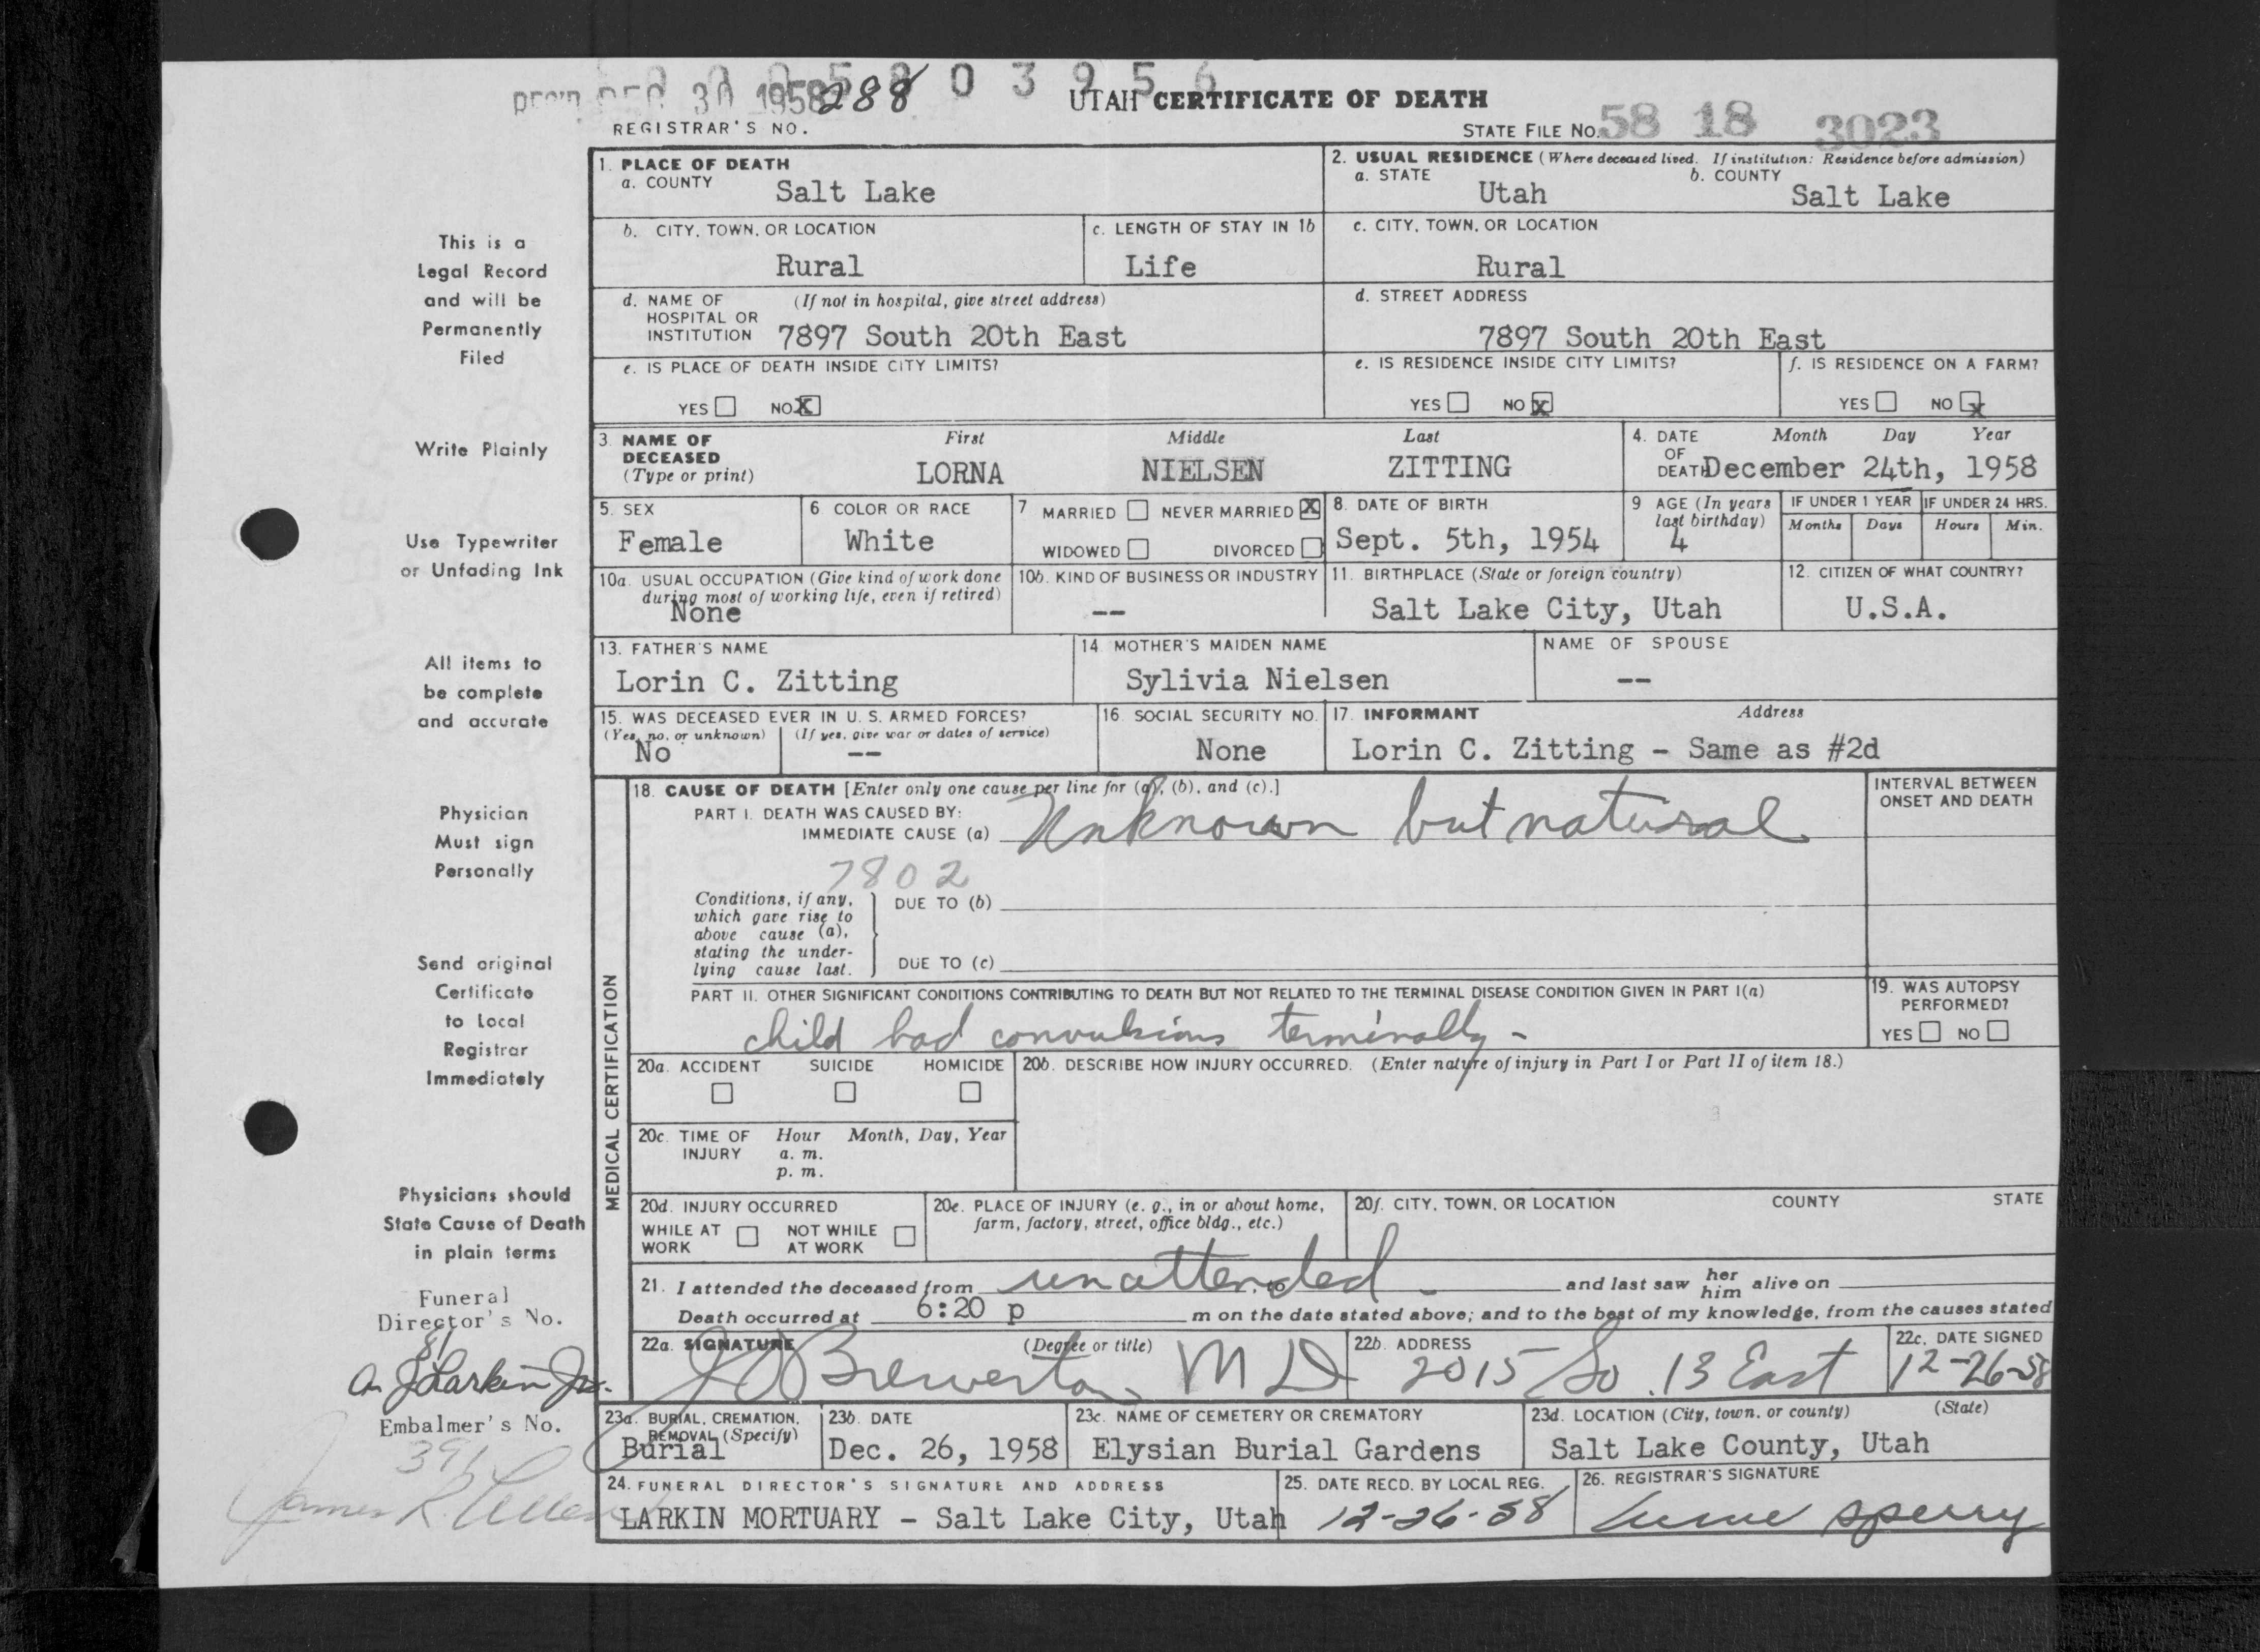 REC'D DEC 30 1958 288
0 3 9 5 6
UTAH CERTIFICATE OF DEATH
REGISTRAR'S NO.
STATE FILE NO. 58 18 3023
This is a
Legal Record
and will be
Permanently
Filed
Write Plainly
Use Typewriter
or Unfading Ink
All items to
be complete
and accurate
Physician
Must sign
Personally
Send original
Certificate
to Local
Registrar
Immediately
Physicians should
State Cause of Death
in plain terms
Funeral
Director's No.
81
A J Larkin Jr.
Embalmer's No.
391
James R.
1. PLACE OF DEATH
a. COUNTY Salt Lake
2. USUAL RESIDENCE (Where deceased lived. If institution: Residence before admission)
a. STATE Utah b. COUNTY Salt Lake
b. CITY, TOWN, OR LOCATION Rural
c. LENGTH OF STAY IN 1b Life
c. CITY, TOWN, OR LOCATION Rural
d. NAME OF HOSPITAL OR INSTITUTION (If not in hospital, give street address) 7897 South 20th East
d. STREET ADDRESS 7897 South 20th East
e. IS PLACE OF DEATH INSIDE CITY LIMITS?
YES NO X
e. IS RESIDENCE INSIDE CITY LIMITS?
YES NO X
f. IS RESIDENCE ON A FARM?
YES NO X
3. NAME OF DECEASED (Type or print) First LORNA Middle NIELSEN Last ZITTING
4. DATE OF DEATH Month Day Year December 24th, 1958
5. SEX Female
6 COLOR OR RACE White
7 MARRIED NEVER MARRIED X
WIDOWED DIVORCED
8. DATE OF BIRTH Sept. 5th, 1954
9 AGE (In years last birthday) 4
IF UNDER 1 YEAR Months Days
IF UNDER 24 HRS. Hours Min.
10a. USUAL OCCUPATION (Give kind of work done during most of working life, even if retired) None
10b. KIND OF BUSINESS OR INDUSTRY --
11. BIRTHPLACE (State or foreign country) Salt Lake City, Utah
12. CITIZEN OF WHAT COUNTRY? U.S.A.
13. FATHER'S NAME Lorin C. Zitting
14. MOTHER'S MAIDEN NAME Sylivia Nielsen
NAME OF SPOUSE --
15. WAS DECEASED EVER IN U. S. ARMED FORCES?
(Yes, no, or unknown) No (If yes, give war or dates of service) --
16. SOCIAL SECURITY NO. None
17. INFORMANT Address
Lorin C. Zitting - Same as #2d
MEDICAL CERTIFICATION
18. CAUSE OF DEATH [Enter only one cause per line for (a), (b), and (c).]
PART I. DEATH WAS CAUSED BY:
IMMEDIATE CAUSE (a) Unknown but natural
INTERVAL BETWEEN ONSET AND DEATH
7802
Conditions, if any, which gave rise to above cause (a), stating the underlying cause last.
DUE TO (b)
DUE TO (c)
PART II. OTHER SIGNIFICANT CONDITIONS CONTRIBUTING TO DEATH BUT NOT RELATED TO THE TERMINAL DISEASE CONDITION GIVEN IN PART I(a)
child had convulsions terminally -
19. WAS AUTOPSY PERFORMED?
YES NO
20a. ACCIDENT SUICIDE HOMICIDE
20b. DESCRIBE HOW INJURY OCCURRED. (Enter nature of injury in Part I or Part II of item 18.)
20c. TIME OF INJURY Hour a. m. p. m. Month, Day, Year
20d. INJURY OCCURRED
WHILE AT WORK NOT WHILE AT WORK
20e. PLACE OF INJURY (e. g., in or about home, farm, factory, street, office bldg., etc.)
20f. CITY, TOWN, OR LOCATION COUNTY STATE
21. I attended the deceased from unattended to - and last saw her him alive on
Death occurred at 6:20 p m on the date stated above; and to the best of my knowledge, from the causes stated
22a. SIGNATURE (Degree or title) Brewerton M D
22b. ADDRESS 2015 So. 13 East
22c. DATE SIGNED 12-26-58
23a. BURIAL, CREMATION, REMOVAL (Specify) Burial
23b. DATE Dec. 26, 1958
23c. NAME OF CEMETERY OR CREMATORY Elysian Burial Gardens
23d. LOCATION (City, town, or county) (State) Salt Lake County, Utah
24. FUNERAL DIRECTOR'S SIGNATURE AND ADDRESS
LARKIN MORTUARY - Salt Lake City, Utah
25. DATE RECD. BY LOCAL REG. 12-26-58
26. REGISTRAR'S SIGNATURE Sperry